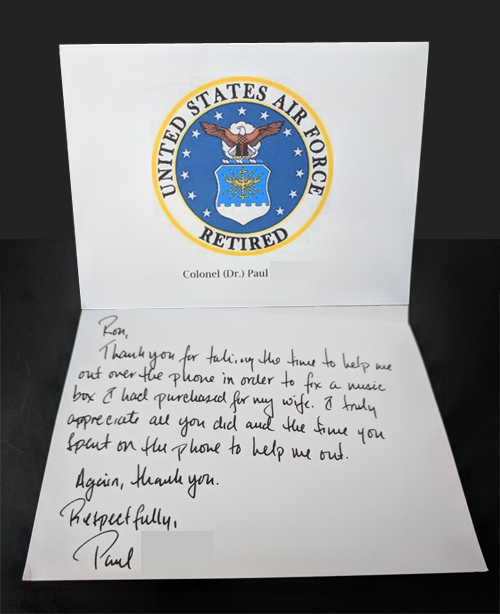 UNITED STATES AIR FORCE
RETIRED
Colonel (Dr.) Paul
Ron,
Thank you for taking the time to help me
out over the phone in order to fix a music
box I had purchased for my wife. I truly
appreciate all you did and the time you
spent on the phone to help me out.
Again, thank you.
Respectfully,
Paul